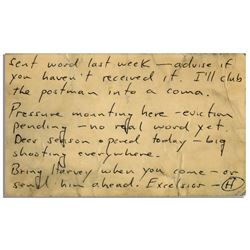 sent word last week — advise if
you haven't received it. I'll club
the postman into a coma.
Pressure mounting here — eviction
pending — no real word yet.
Deer season opened today — big
shooting everywhere.
Bring Harvey when you come — or
send him ahead. Excelsior — H